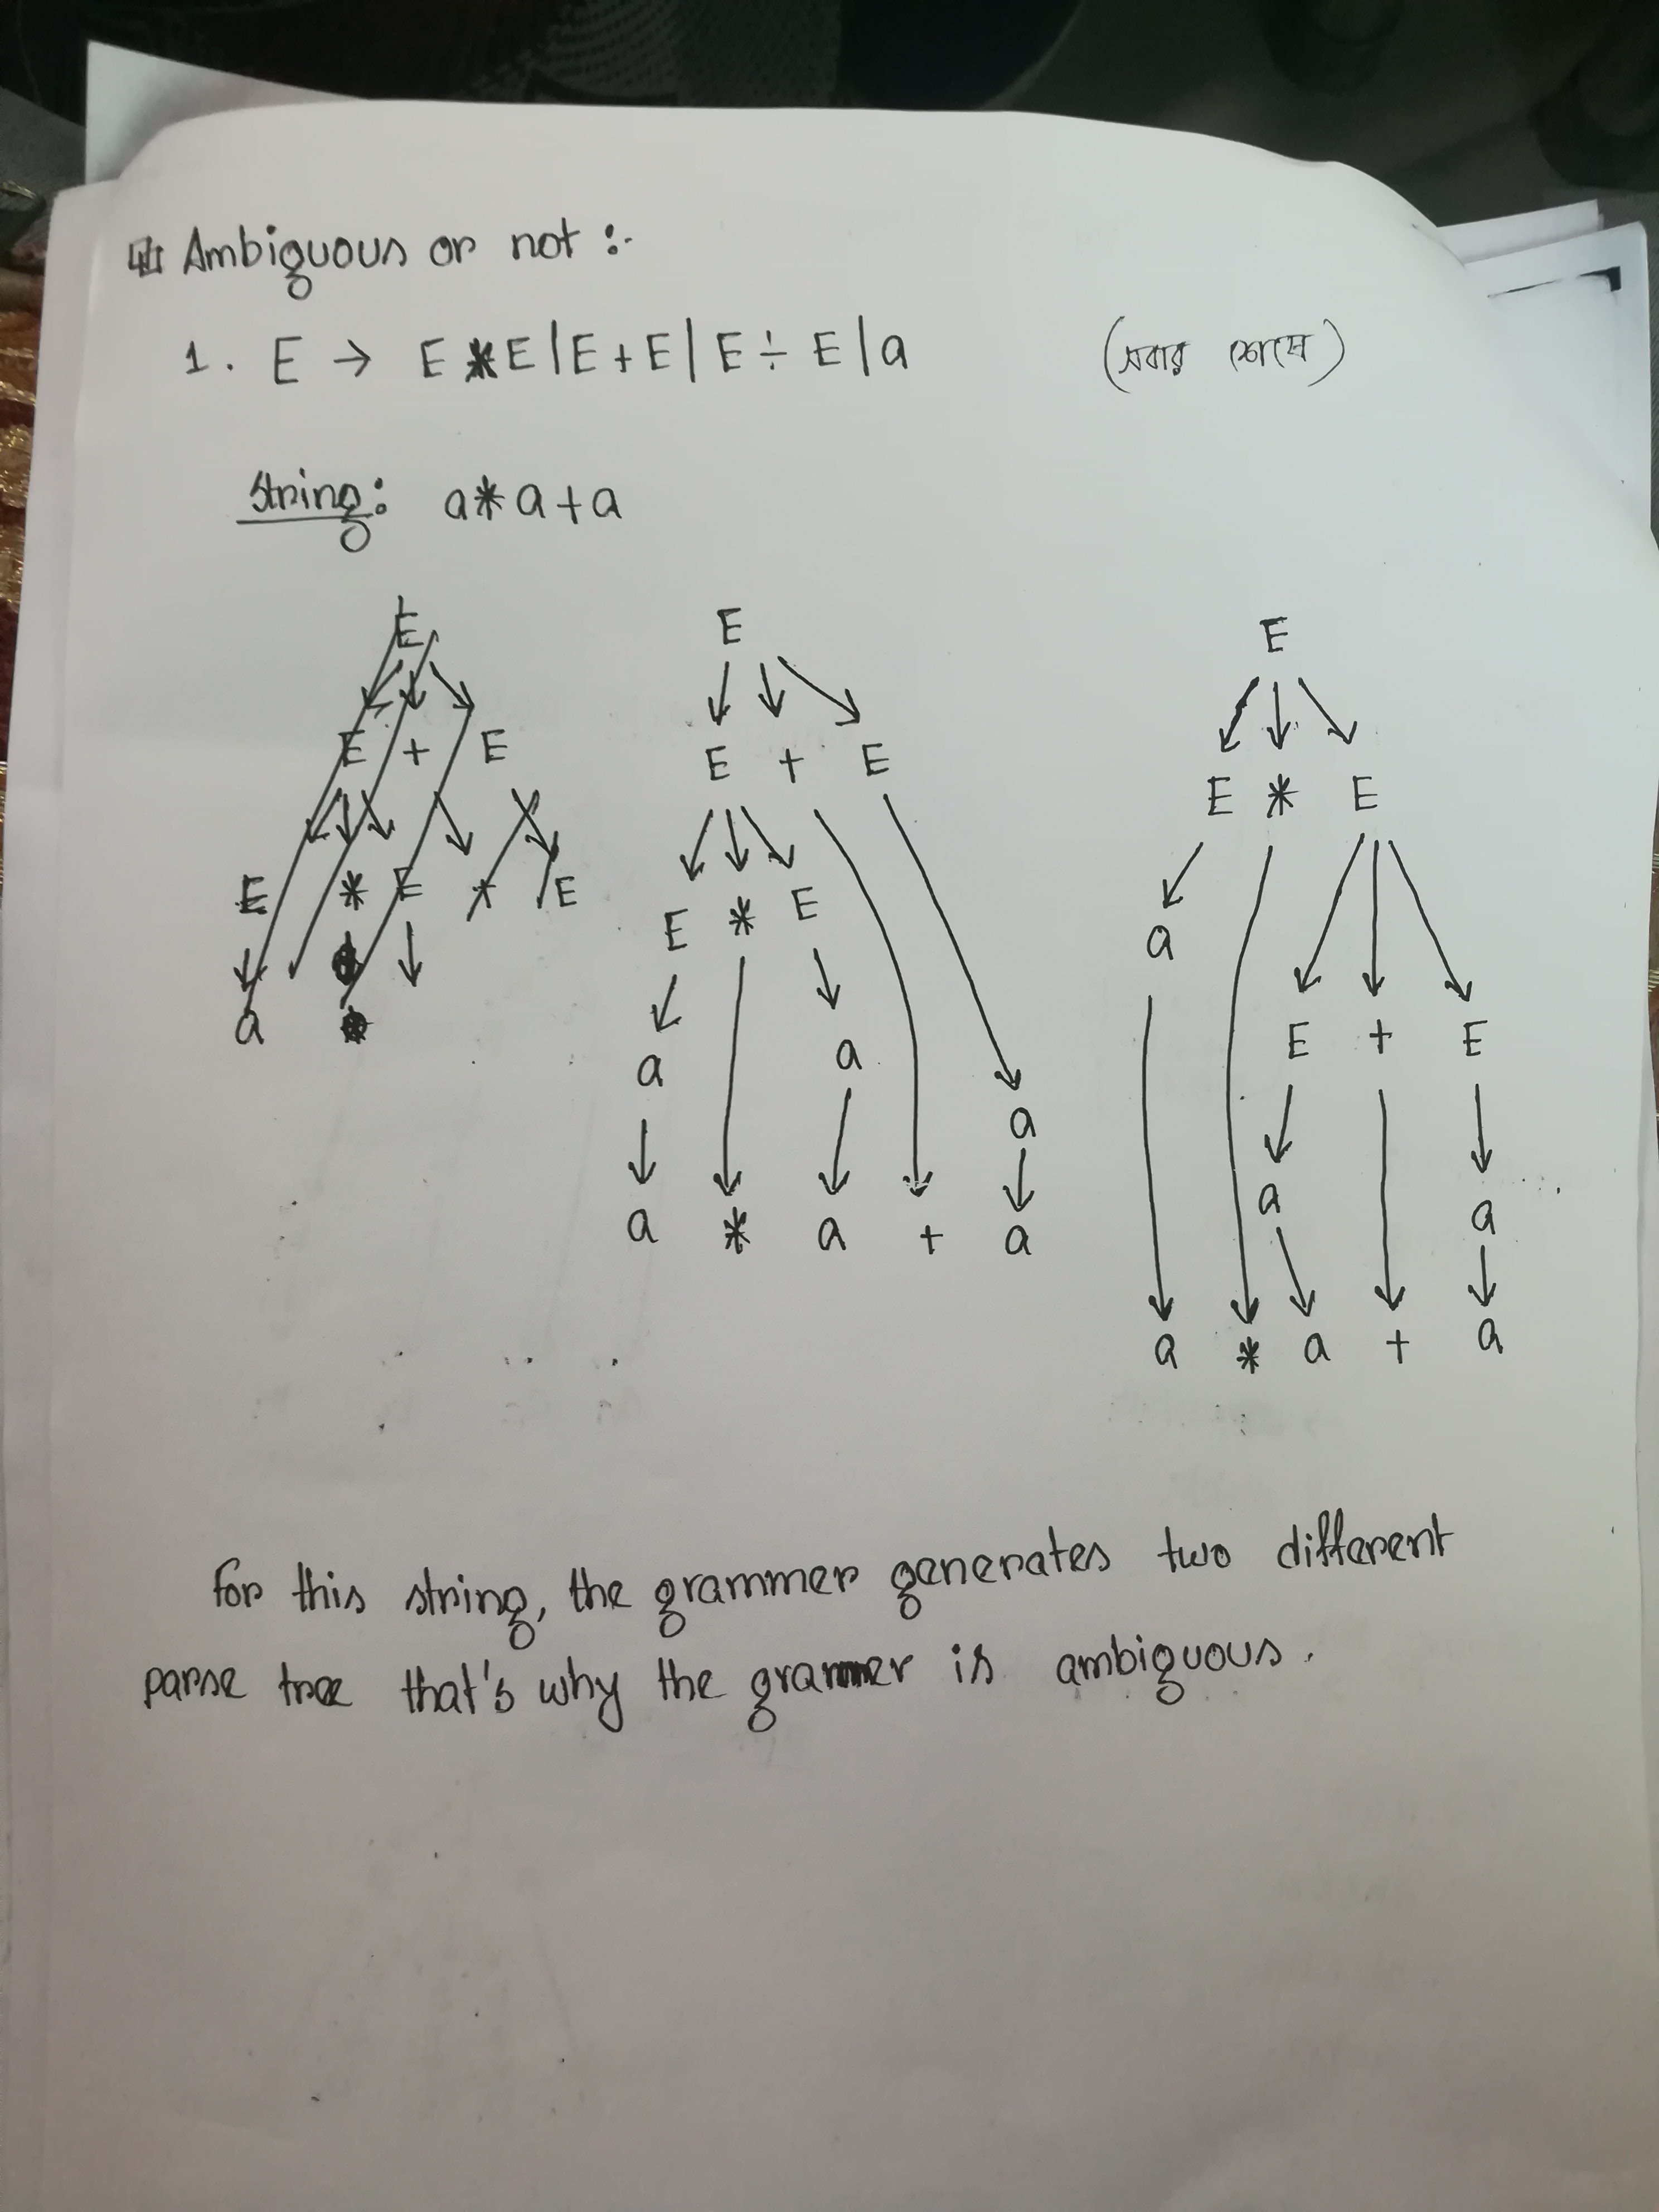 Ambiguous or not :-
1. E → E * E | E + E | E ÷ E | a (সবার শেষে)
String: a * a + a
E E E
E + E E + E E * E
E * E * E E * E a
a a a E + E
a a a
a * a + a a
a * a + a
For this string, the grammer generates two different
parse tree that's why the grammer is ambiguous.